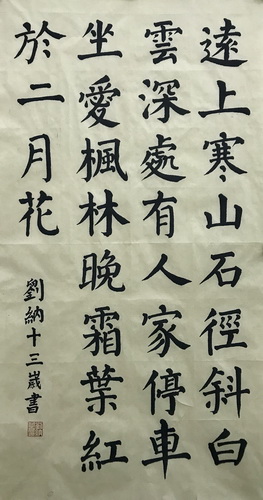 遠上寒山石徑斜白
雲深處有人家停車
坐愛楓林晚霜葉紅
於二月花
劉納十三歲書